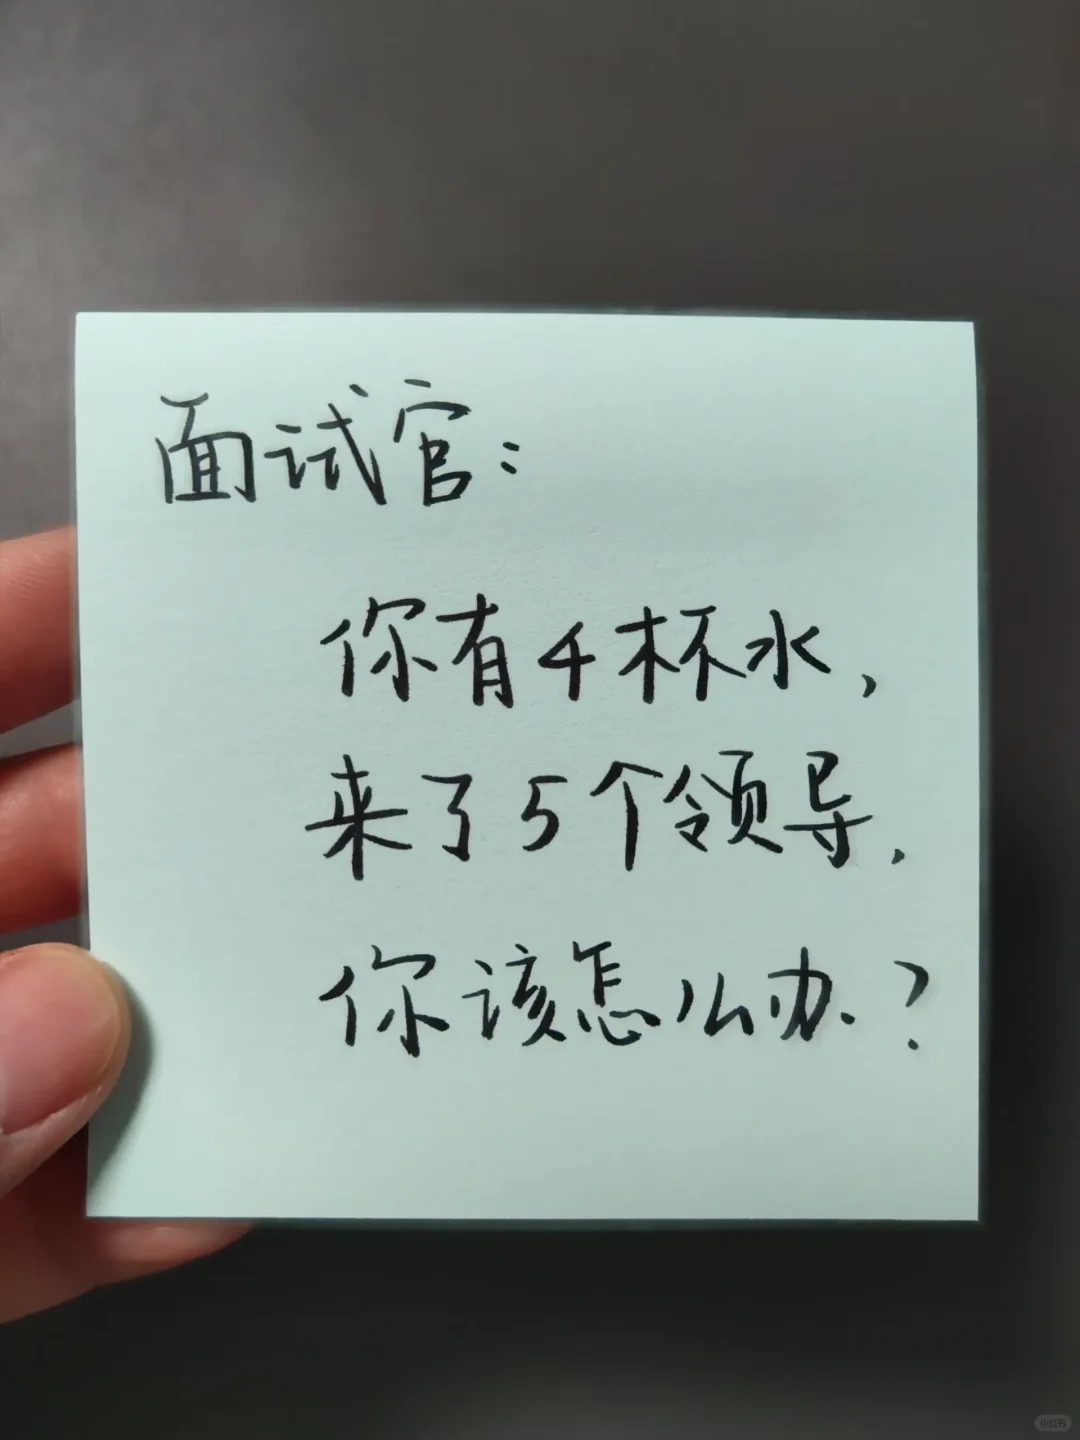 面试官：
你有4杯水，
来了5个领导，
你该怎么办？
小红书